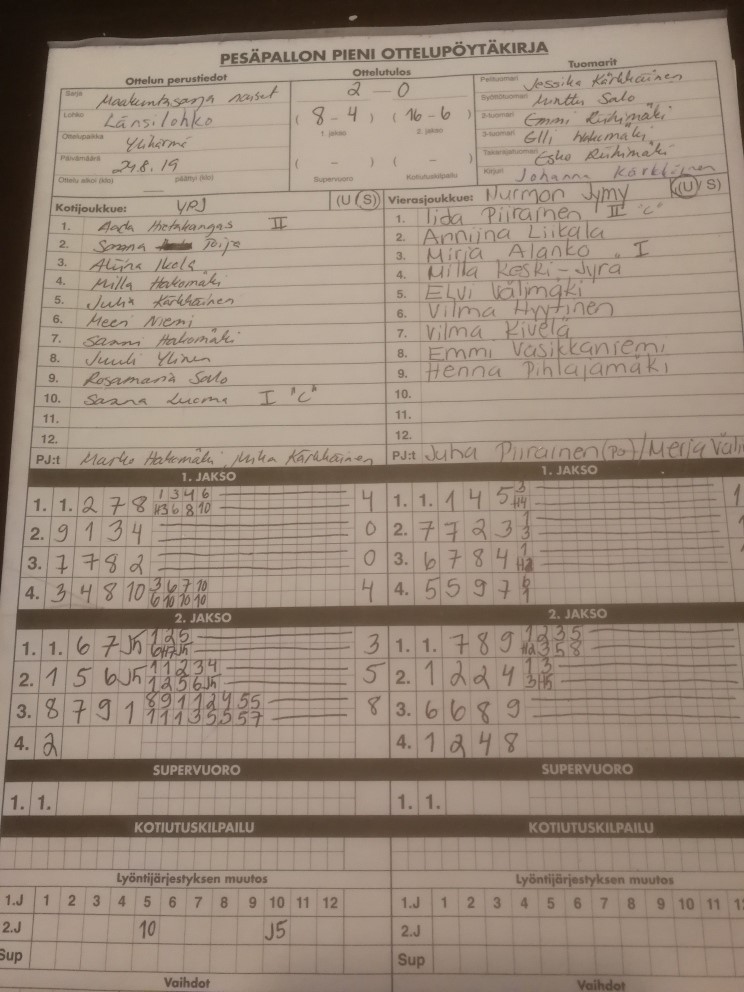 PESÄPALLON PIENI OTTELUPÖYTÄKIRJA
Ottelun perustiedot
Sarja Maakuntasarja naiset
Lohko Länsilohko
Ottelupaikka Ylihärmä
Päivämäärä 29.8.19
Ottelu alkoi (klo) päättyi (klo)
Ottelutulos
2 - 0
( 8 - 4 ) ( 16 - 6 )
1. jakso 2. jakso
( - ) ( - )
Supervuoro Kotiutuskilpailu
Tuomarit
Pelituomari Jessika Kärkkäinen
Syöttötuomari Minttu Salo
2-tuomari Emmi Riihimäki
3-tuomari Elli Hakomäki
Takarajatuomari Esko Riihimäki
Kirjuri Johanna Kärkkäinen
Kotijoukkue: YPJ (U S)
1. Aada Hietakangas II
2. Sanna Toija
3. Aliina Ikola
4. Milla Hakomäki
5. Julia Kärkkäinen
6. Meeri Niemi
7. Sanni Hakomäki
8. Juuli Ylinen
9. Rosamaria Salo
10. Sanna Luoma I "C"
11.
12.
PJ:t Marko Hakomäki, Mika Kärkkäinen
Vierasjoukkue: Nurmon Jymy (U S)
1. Iida Piirainen II "C"
2. Anniina Liikala
3. Mirja Alanko I
4. Milla Keski-Jyrä
5. Elvi Välimäki
6. Vilma Hyytinen
7. Vilma Kivelä
8. Emmi Vasikkaniemi
9. Henna Pihlajamäki
10.
11.
12.
PJ:t Juha Piirainen (PJ) / Merja
1. JAKSO
1. 1. 2 7 8 1 3 4 6 4
H3 6 8 10
2. 9 1 3 4 0
3. 7 7 8 2 0
4. 3 4 8 10 3 6 7 10 4
6 10 10 10
1. JAKSO
1. 1. 1 4 5 3 1
H4
2. 7 7 2 3 1 1
3
3. 6 7 8 4 1 1
4. 5 5 9 7 6
1
2. JAKSO
1. 1. 6 7 J5 1 2 5 3
2. 1 5 6 J5 1 1 2 3 4 5
1 2 5 6 J5
3. 8 7 9 1 8 9 1 1 2 4 5 5 8
1 1 1 3 5 5 5 7
4. 2
2. JAKSO
1. 1. 7 8 9 1 2 3 5
H2 3 5 8
2. 1 2 2 4 1 3
3 H5
3. 6 6 8 9
4. 1 2 4 8
SUPERVUORO
1. 1.
SUPERVUORO
1. 1.
KOTIUTUSKILPAILU
KOTIUTUSKILPAILU
Lyöntijärjestyksen muutos
1.J 1 2 3 4 5 6 7 8 9 10 11 12
2.J 10 J5
Sup
Vaihdot
Lyöntijärjestyksen muutos
1.J 1 2 3 4 5 6 7 8 9 10 11
2.J
Sup
Vaihdot